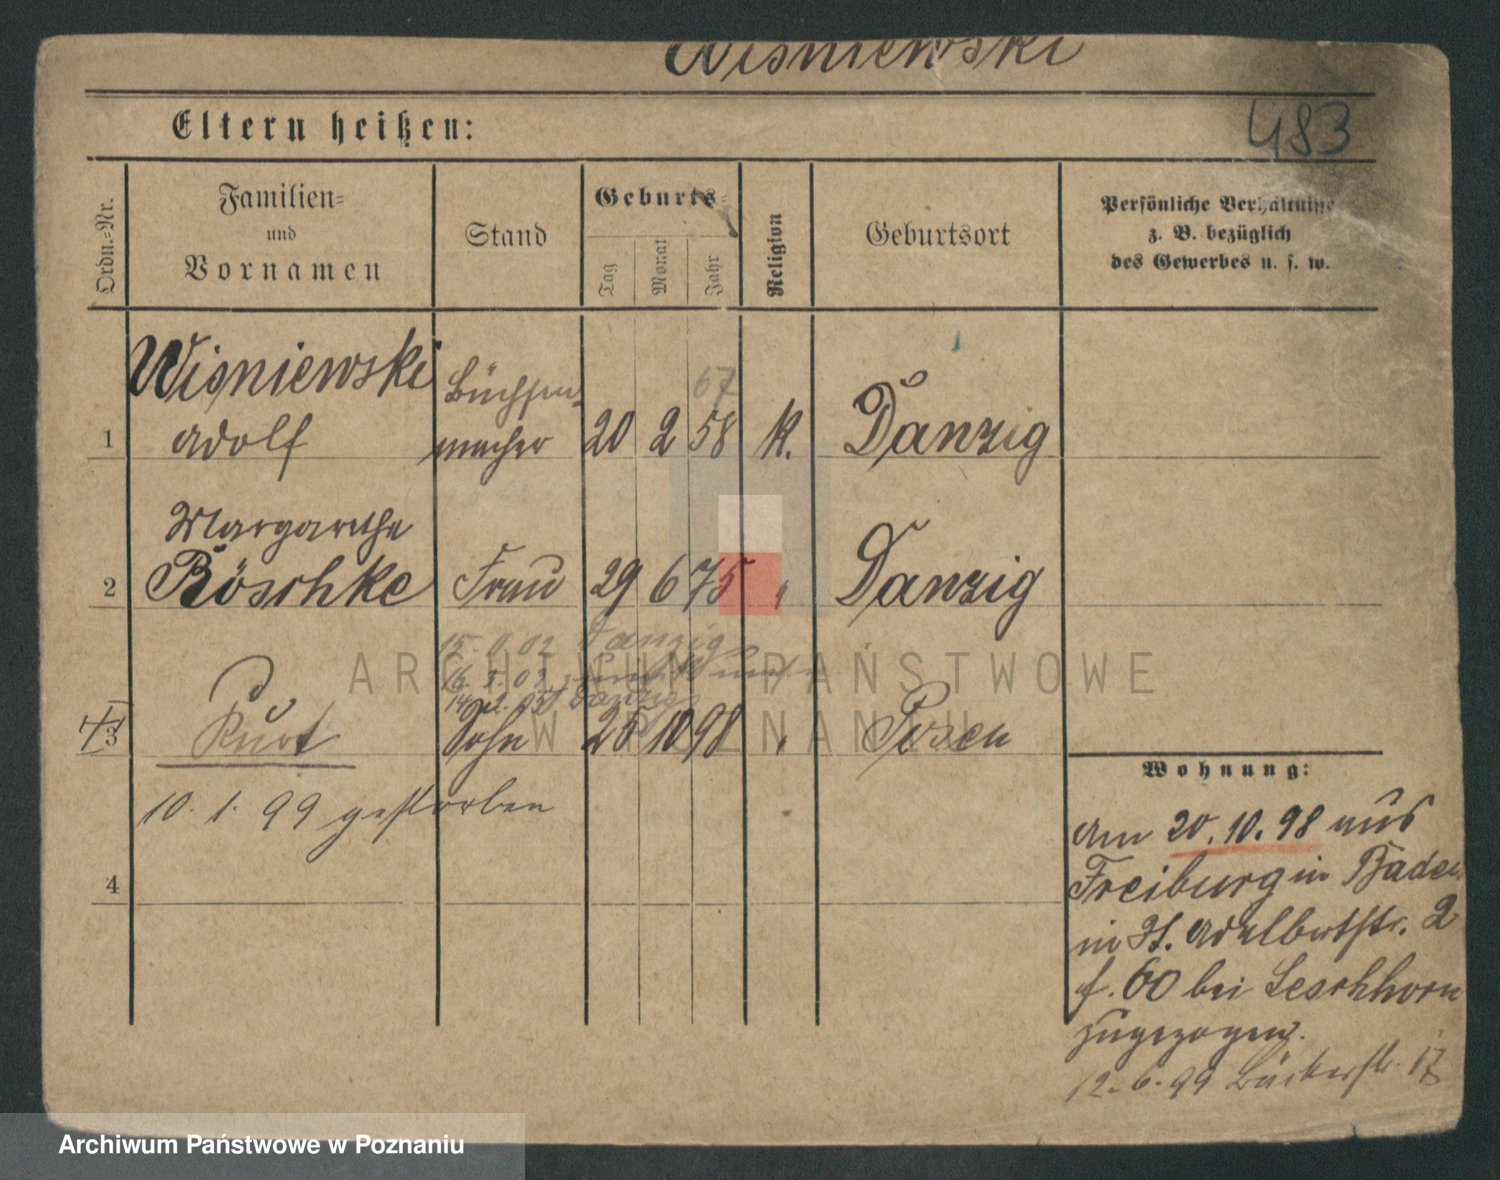 Wisniewski
483
Eltern heißen:
Ordn.-Nr.
Familien-
und
Vornamen
Stand
Geburts-
Tag
Monat
Jahr
Religion
Geburtsort
Persönliche Verhältnisse
z. B. bezüglich
des Gewerbes u. s. w.
Wisniewski
Büchsen-
67
1 Adolf macher 20 2 58 k. Danzig
Margarethe
2 Böschke Frau 29 6 75 " Danzig
15. 02 Danzig
16. 5. 03
Danzig
3 Kurt Sohn 25 10 98 " Posen
10. 1. 99 gestorben
4
Wohnung:
Am 20.10.98 aus
Freiburg in Baden
in St. Adalbertstr. 2
f. 60 bei Leschhorn
zugezogen.
12.6.99 Bäckerstr. 17
ARCHIWUM PAŃSTWOWE
W POZNANIU
Archiwum Państwowe w Poznaniu